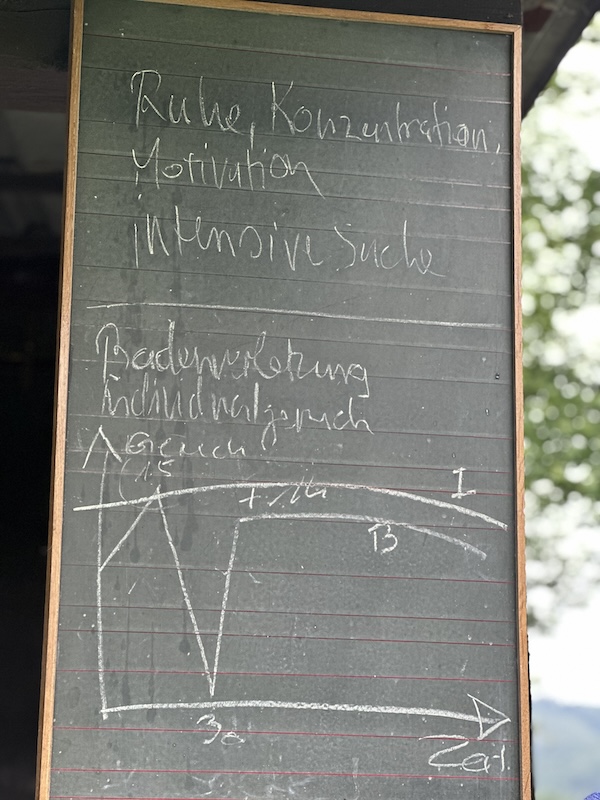 Ruhe, Konzentration,
Motivation
intensive Suche
Bodenverletzung
Individualgeruch
Geruch
15
I
B
30
Zeit